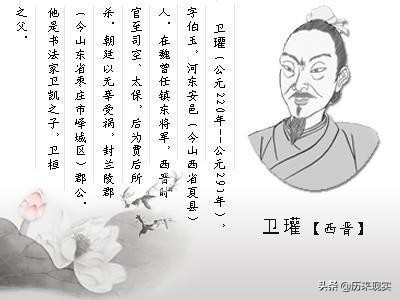 卫瓘（公元220年——公元291年），
字伯玉，河东安邑（今山西省夏县）
人。在魏曾任镇东将军，西晋时
官至司空、太保，后为贾后所
杀。朝廷以无辜受祸，封兰陵郡
（今山东省枣庄市峄城区）郡公。
他是书法家卫凯之子，卫桓
之父。
卫瓘【西晋】
头条 @历来现实